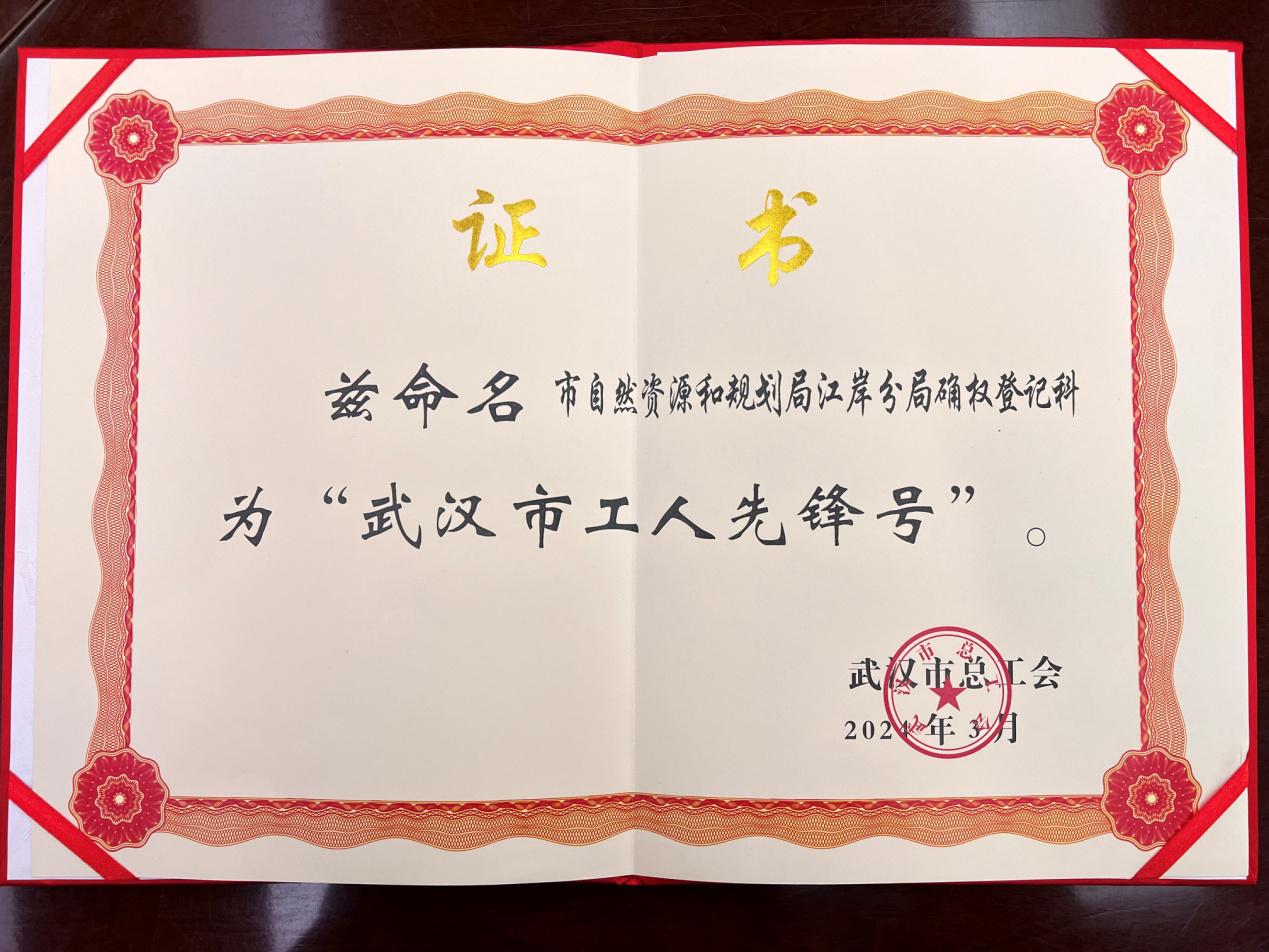 证书
兹命名 市自然资源和规划局江岸分局确权登记科
为“武汉市工人先锋号”。
武汉市总工会
2024年3月
武汉市总工会